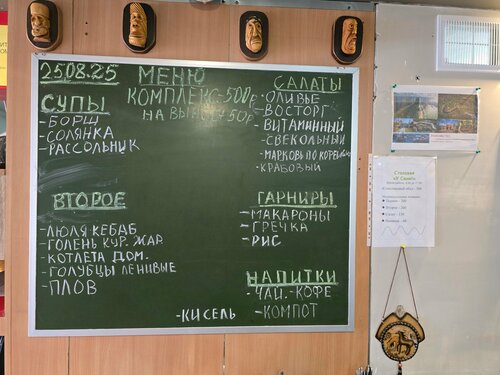 25.08.25 МЕНЮ
КОМПЛЕКС: 500р
НА ВЫНОС +50р.
СУПЫ
-БОРЩ
-СОЛЯНКА
-РАССОЛЬНИК
САЛАТЫ
-ОЛИВЬЕ
-ВОСТОРГ
-ВИТАМИННЫЙ
-СВЕКОЛЬНЫЙ
-МАРКОВЬ ПО КОРЕЙСКИ
-КРАБОВЫЙ
ВТОРОЕ
-ЛЮЛЯ КЕБАБ
-ГОЛЕНЬ КУР. ЖАР.
-КОТЛЕТА ДОМ.
-ГОЛУБЦЫ ЛЕНИВЫЕ
-ПЛОВ
ГАРНИРЫ
-МАКАРОНЫ
-ГРЕЧКА
-РИС
НАПИТКИ
-ЧАЙ. -КОФЕ
-КИСЕЛЬ -КОМПОТ
Столовая